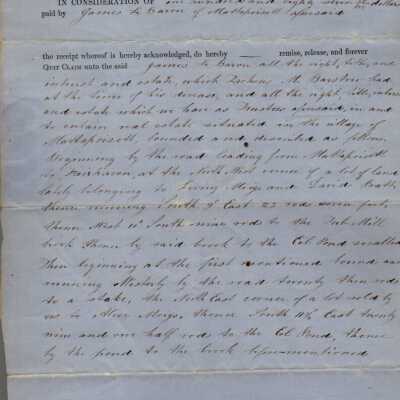 IN CONSIDERATION OF one hundred and eighty seven dollars
paid by James Le Baron of Mattapoisett aforesaid
the receipt whereof is hereby acknowledged, do hereby remise, release, and forever
QUIT CLAIM unto the said James Le Baron all the right, title, and
interest and estate, which M. Barstow had
at the time of his decease, and all the right, title, interest
and estate which we have as Trustees aforesaid, in and
to certain real estate situated in the village of
Mattapoisett, bounded and described as follows
Beginning by the road leading from Mattapoisett
to Fairhaven, at the North West corner of a lot of land
belonging to Meigs and
thence running South 9° East 23 rods seven feet,
thence West 11° South nine rods to the Mill
brook thence by said brook to the Eel Pond
Then beginning at the first mentioned bound and
running Westerly by the road twenty three rods
to a stake, the North East corner of a lot sold by
us to Meigs, thence South 11½ East twenty
nine and one half rods to the Eel Pond, thence
by the pond to the brook before mentioned